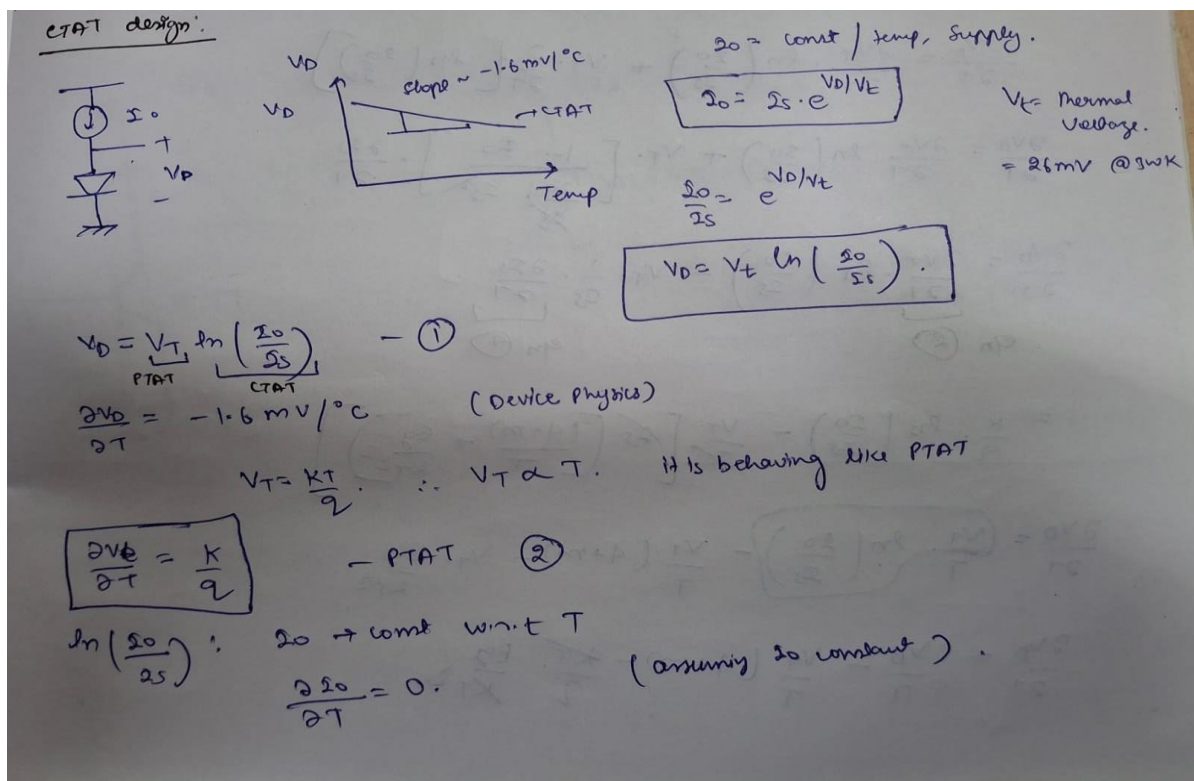 CTAT design:
I0
+
VD
-
VD
VD
slope ~ -1.6 mV/°C
→CTAT
Temp
I0 = const / temp, Supply.
I0 = Is · e^VD/Vt
Vt = Thermal
Voltage.
= 26mV @300K
I0/Is = e^VD/Vt
VD = Vt ln(I0/Is).
VD = VT ln(I0/Is) - ①
PTAT CTAT
∂VD/∂T = -1.6 mV/°C (Device Physics)
VT = KT/q. ∴ VT α T. it is behaving like PTAT
∂Vt/∂T = K/q - PTAT ②
ln(I0/Is) : I0 → const w.r.t T
∂I0/∂T = 0. (assuming I0 constant).